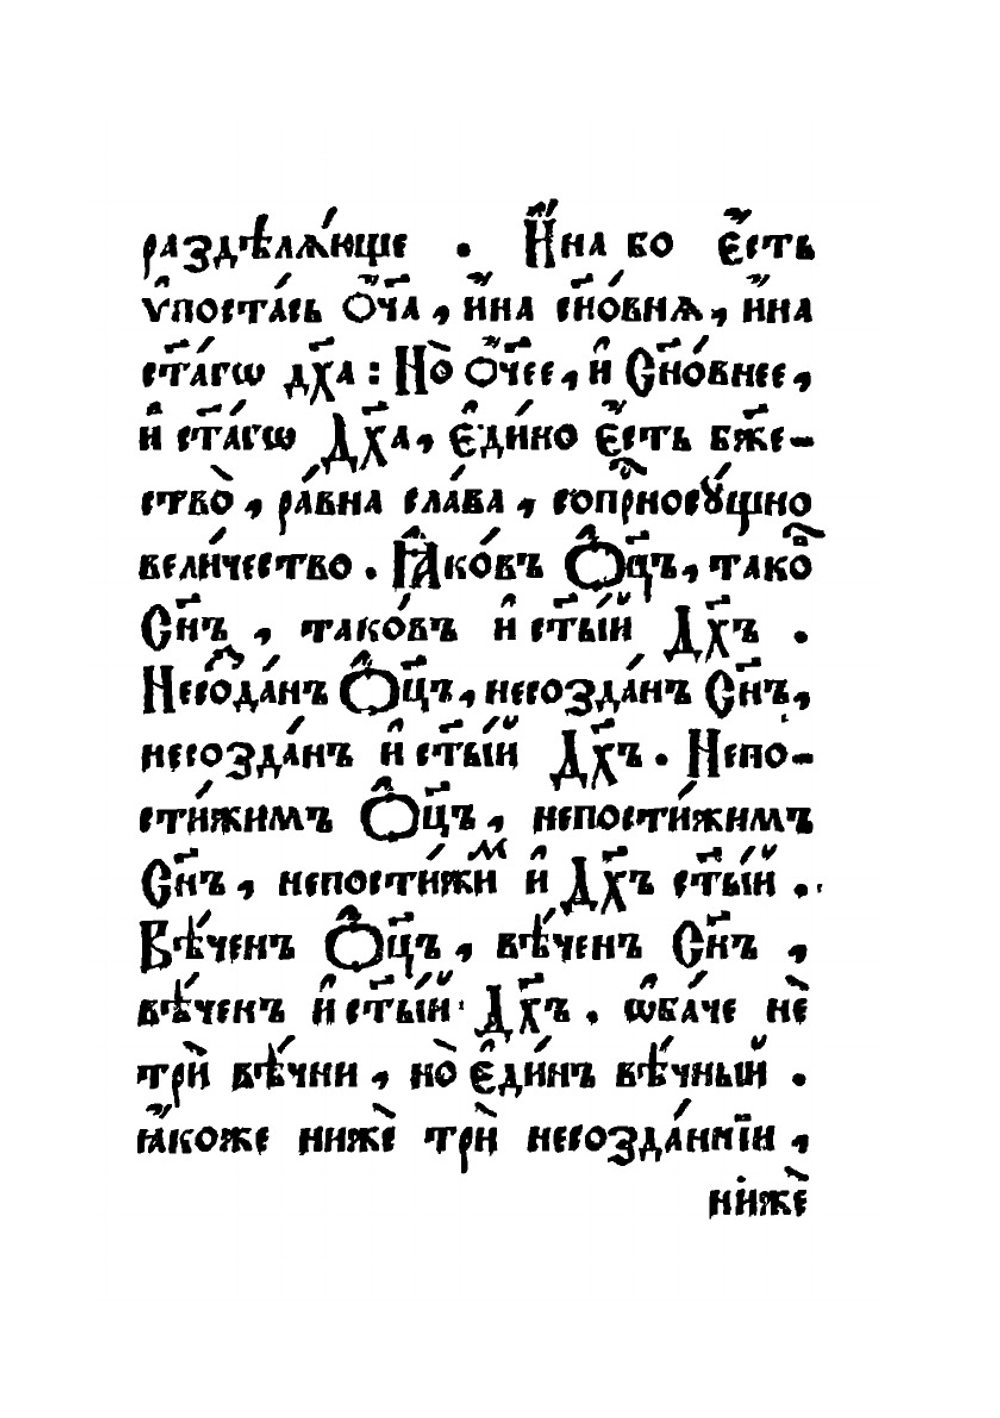 раздѣлѧ́юще . И҆́на бо є҆́сть
ѵ҆поста́сь ѻ҆́ч҃а , и҆́на сн҃о́внѧ , и҆́на
ст҃а́гѡ дх҃а : Но̀ ѻ҆́ч҃ее , и҆ Сн҃о́внее ,
и҆ ст҃а́гѡ Дх҃а , є҆ди́но є҆́сть бж҃е-
ство̀ , ра́вна сла́ва , сопрⷭ҇носꙋ́щно
вели́чество . Ꙗ҆ко́въ Ѻ҆ц҃ъ , тако́въ
Сн҃ъ , тако́въ и҆ ст҃ы́й Дх҃ъ .
Несоⷥда́нъ Ѻ҆ц҃ъ , несозда́нъ Сн҃ъ ,
несозда́нъ и҆ ст҃ы́й Дх҃ъ . Непо-
сти́жимъ Ѻ҆ц҃ъ , непости́жимъ
Сн҃ъ , непости́жиⷨ и҆ Дх҃ъ ст҃ы́й .
Вѣ́ченъ Ѻ҆ц҃ъ , вѣ́ченъ Сн҃ъ ,
вѣ́ченъ и҆ ст҃ы́й Дх҃ъ . ѡ҆ба́че нѐ
трѝ вѣ́чни , но̀ є҆ди́нъ вѣ́чный .
ꙗ҆́коже нижѐ трѝ несозда́ннїи ,
нижѐ